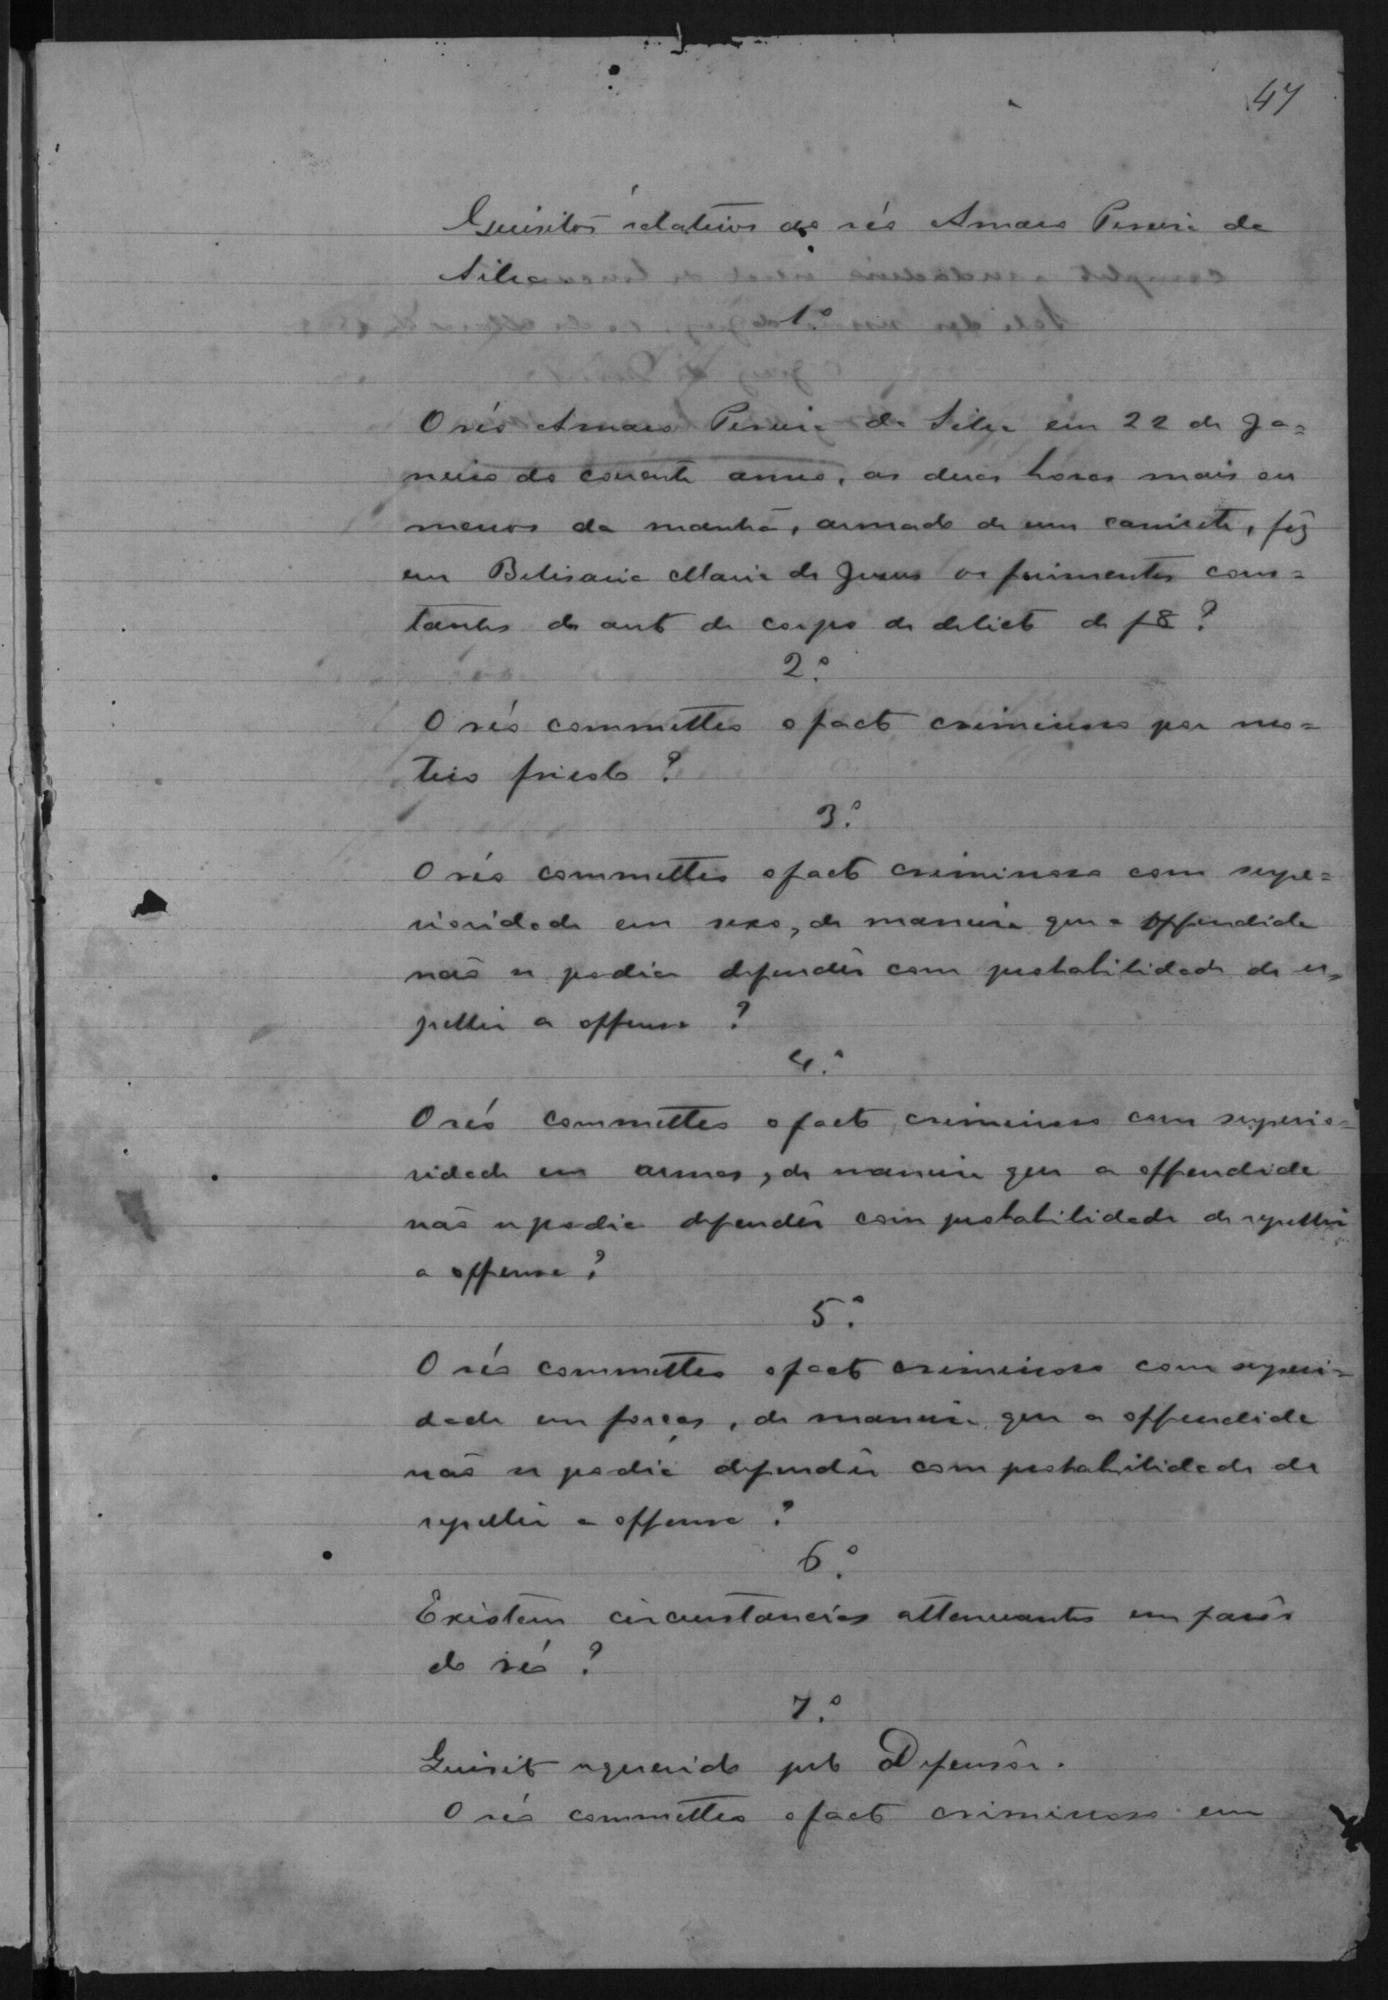 47
Quisitos relativos ao réo Amaro Pereira da
Silva
1.º
O réo Amaro Pereira da Silva em 22 de Ja=
neiro do corrente anno, as duas horas mais ou
menos da manhã, armado de um canivete, fez
em Belisaria Maria de Jesus os ferimentos cons=
tantes do auto de corpo de delicto de f 8?
2.º
O réo commetteo o facto criminoso por mo=
tivo frivolo?
3.º
O réo commetteo o facto criminoso com supe=
rioridade em sexo, de maneira que a offendida
não se podia defender com probabilidade de re=
pellir a offensa?
4.º
O réo commetteo o facto criminoso com superio=
ridade em armas, de maneira que a offendida
não se podia defender com probabilidade de repellir
a offensa?
5.º
O réo commetteo o facto criminoso com superi=
dade em forças, de maneira que a offendida
não se podia defender com probabilidade de
repellir a offensa?
6.º
Existem circunstancias attenuantes em favôr
do réo?
7.º
Quisito requerido pelo Defensôr.
O réo commetteo o facto criminoso em